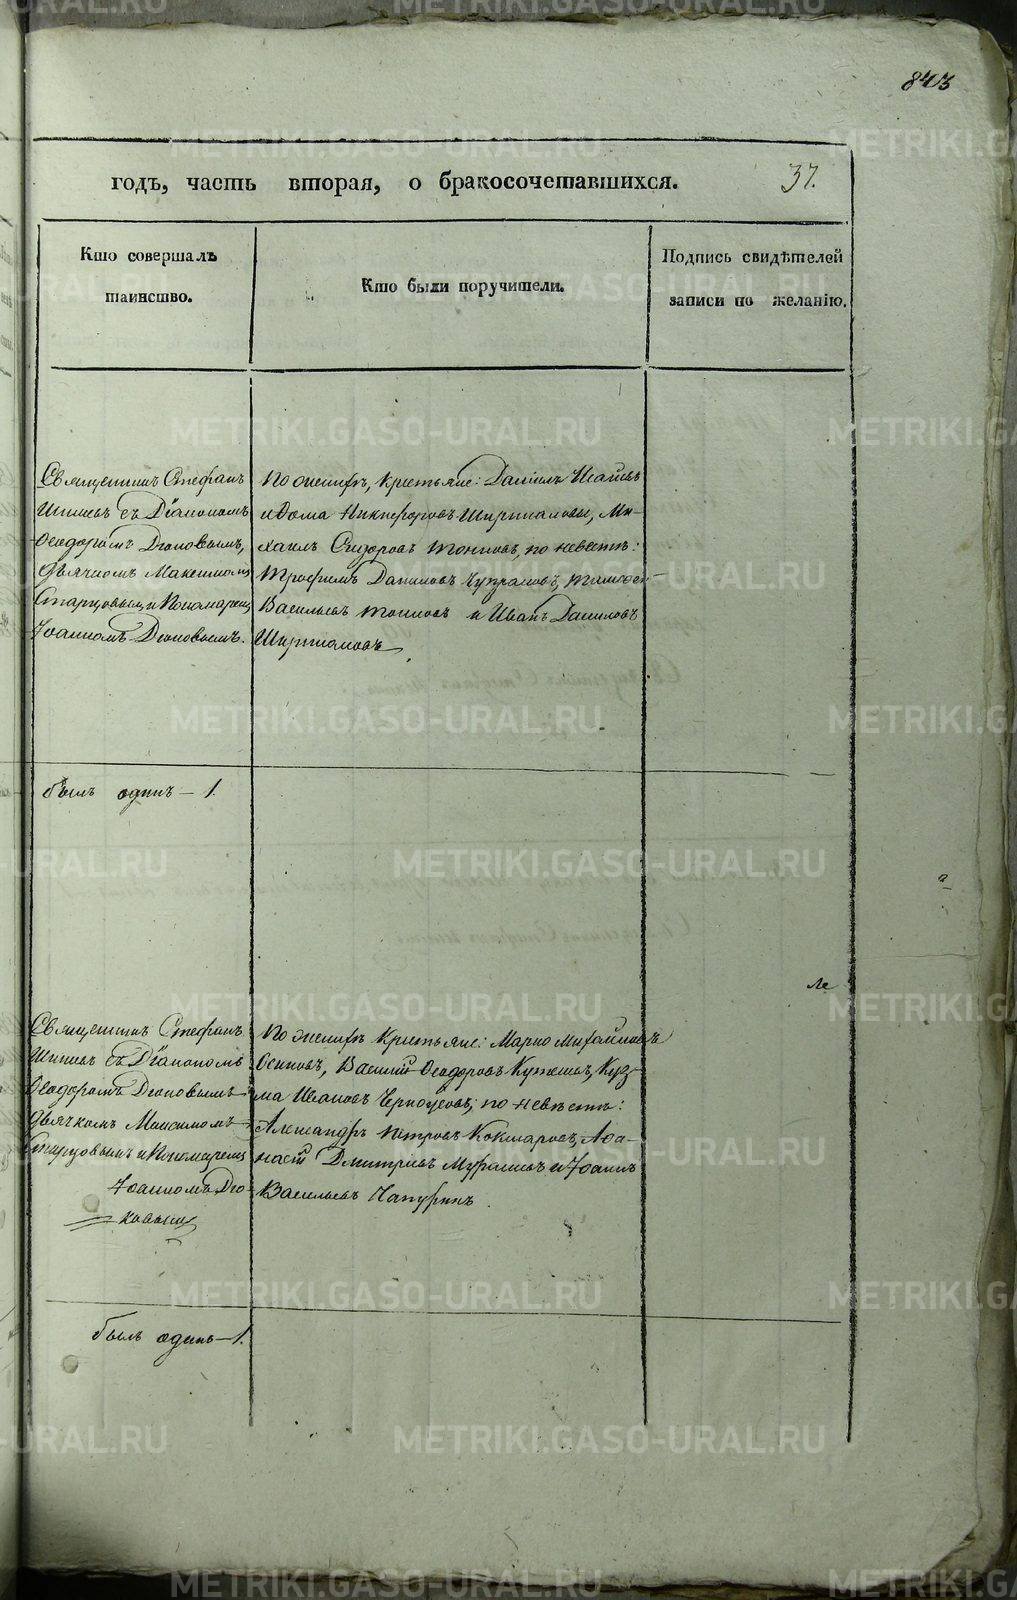 843
годъ, часть вторая, о бракосочетавшихся.
37.
Кто совершалъ
таинство.
Кто были поручители.
Подпись свидѣтелей
записи по желанію.
Священникъ Стефанъ
съ Діакономъ
Ѳеодоромъ Дюковымъ,
дьячкомъ Максимомъ
Старцовымъ и Пономаремъ
Іоанномъ Дюковымъ.
По женихѣ, крестьяне: Даніилъ Исаевъ
и Ѳома Никифоровъ Ширпиаловы, Ми-
хаилъ Сидоровъ по невестѣ:
Трофимъ Даниловъ
Васильевъ и Иванъ Даниловъ
былъ одинъ — 1.
Священникъ Стефанъ
съ Діакономъ
Ѳеодоромъ Дюковымъ
дьячкомъ Максимомъ
Старцовымъ и Пономаремъ
Іоанномъ Дю-
ковымъ
По женихѣ крестьяне: Марко Михайловъ
Осиповъ, Василій Ѳеодоровъ Куз-
ма Ивановъ Черноусовъ, по невѣстѣ:
Александръ Петровъ Кокшаровъ, Аѳа-
насій Дмитріевъ и Іоаннъ
Васильевъ Чапуринъ.
былъ одинъ — 1.
METRIKI.GASO-URAL.RU